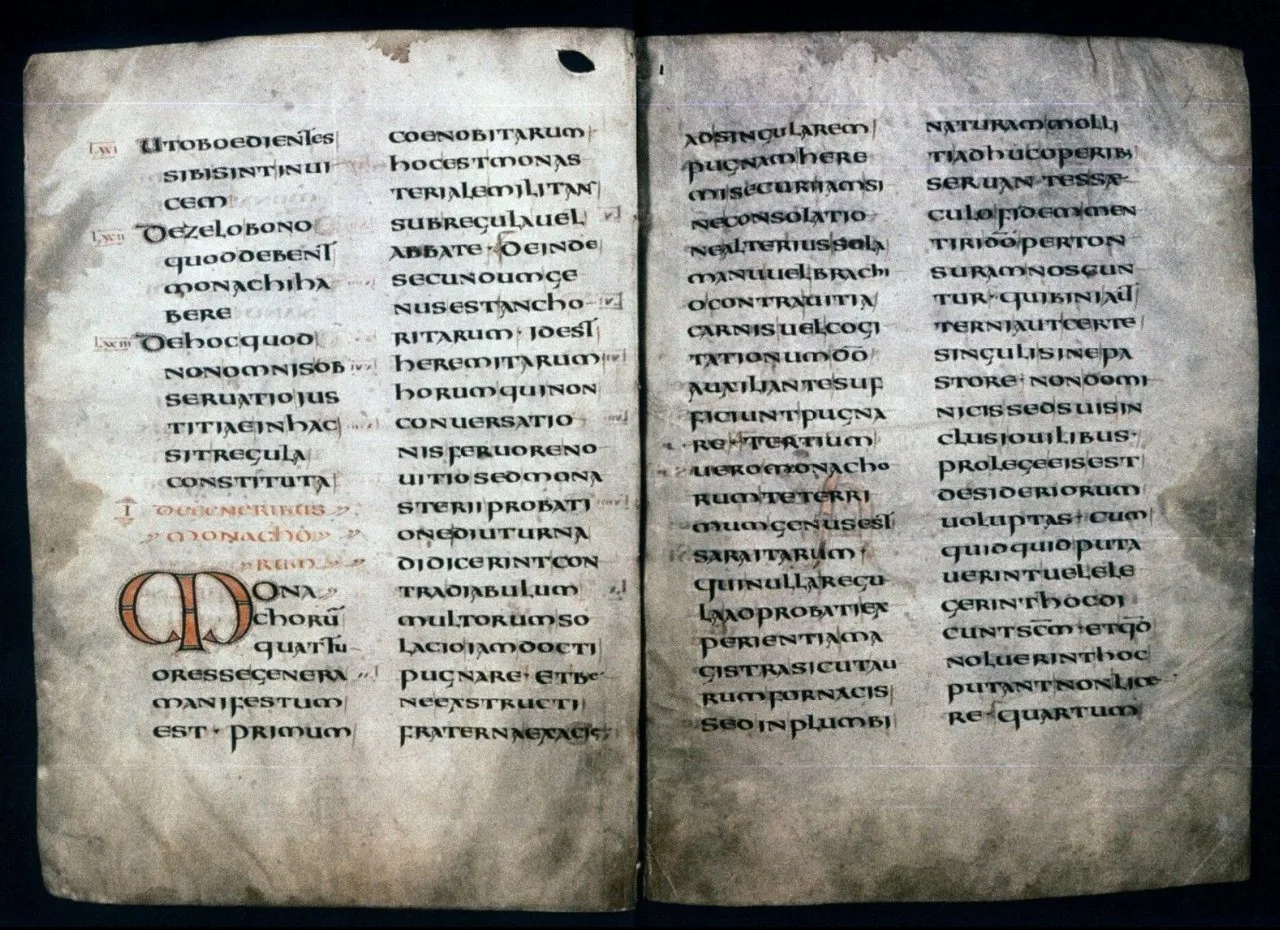 LXXI UTOBOEDIENTES
SIBISINTINUI
CEM
LXXII DEZELOBONO
QUODDEBENT
MONACHIHA
BERE
LXXIII DEHOCQUOD
NONOMNISOB
SERUATIOIUS
TITIAEINHAC
SITREGULA
CONSTITUTA
I DEGENERIBUS
MONACHO
RUM
MONA
CHORŪ
QUATTU
ORESSEGENERA
MANIFESTUM
EST · PRIMUM
COENOBITARUM
HOCESTMONAS
TERIALEMILITAN
SUBREGULAUEL
ABBATE · DEINDE
SECUNDUMGE
NUSESTANCHO
RITARUM · IDEST
HEREMITARUM
HORUMQUINON
CONUERSATIO
NISFERUORENO
UITIOSEDMONA
STERIIPROBATI
ONEDIUTURNA
DIDICERINTCON
TRADIABULUM
MULTORUMSO
LACIOIAMDOCTI
PUGNARE · ETBE
NEEXSTRUCTI
FRATERNAEXACIE
ADSINGULAREM
PUGNAMHERE
MISECURIIAMSI
NECONSOLATIO
NEALTERIUSSOLA
MANUUELBRACHI
OCONTRAUITIA
CARNISUELCOGI
TATIONUMDŌ
AUXILIANTESUF
FICIUNTPUGNA
RE · TERTIUM
UEROMONACHO
RUMTETERRI
MUMGENUSEST
SARAITARUM ·
QUINULLAREGU
LAADPROBATIEX
PERIENTIAMA
GISTRASICUTAU
RUMFORNACIS
SEDINPLUMBI
NATURAMMOLLI
TIADHUCOPERIBI
SERUANTESSAE
CULOFIDEMMEN
TIRIDŌPERTON
SURAMNOSCUN
TUR · QUIBINIAUT
TERNIAUTCERTE
SINGULISINEPA
STORE · NONDOMI
NICISSEDSUISIN
CLUSIOUILIBUS ·
PROLEGEEISEST
DESIDERIORUM
UOLUPTAS · CUM
QUIDQUIDPUTA
UERINTUELELE
GERINTHOCDI
CUNTSC̄M · ETQD̄
NOLUERINTHOC
PUTANTNONLICE
RE · QUARTUM